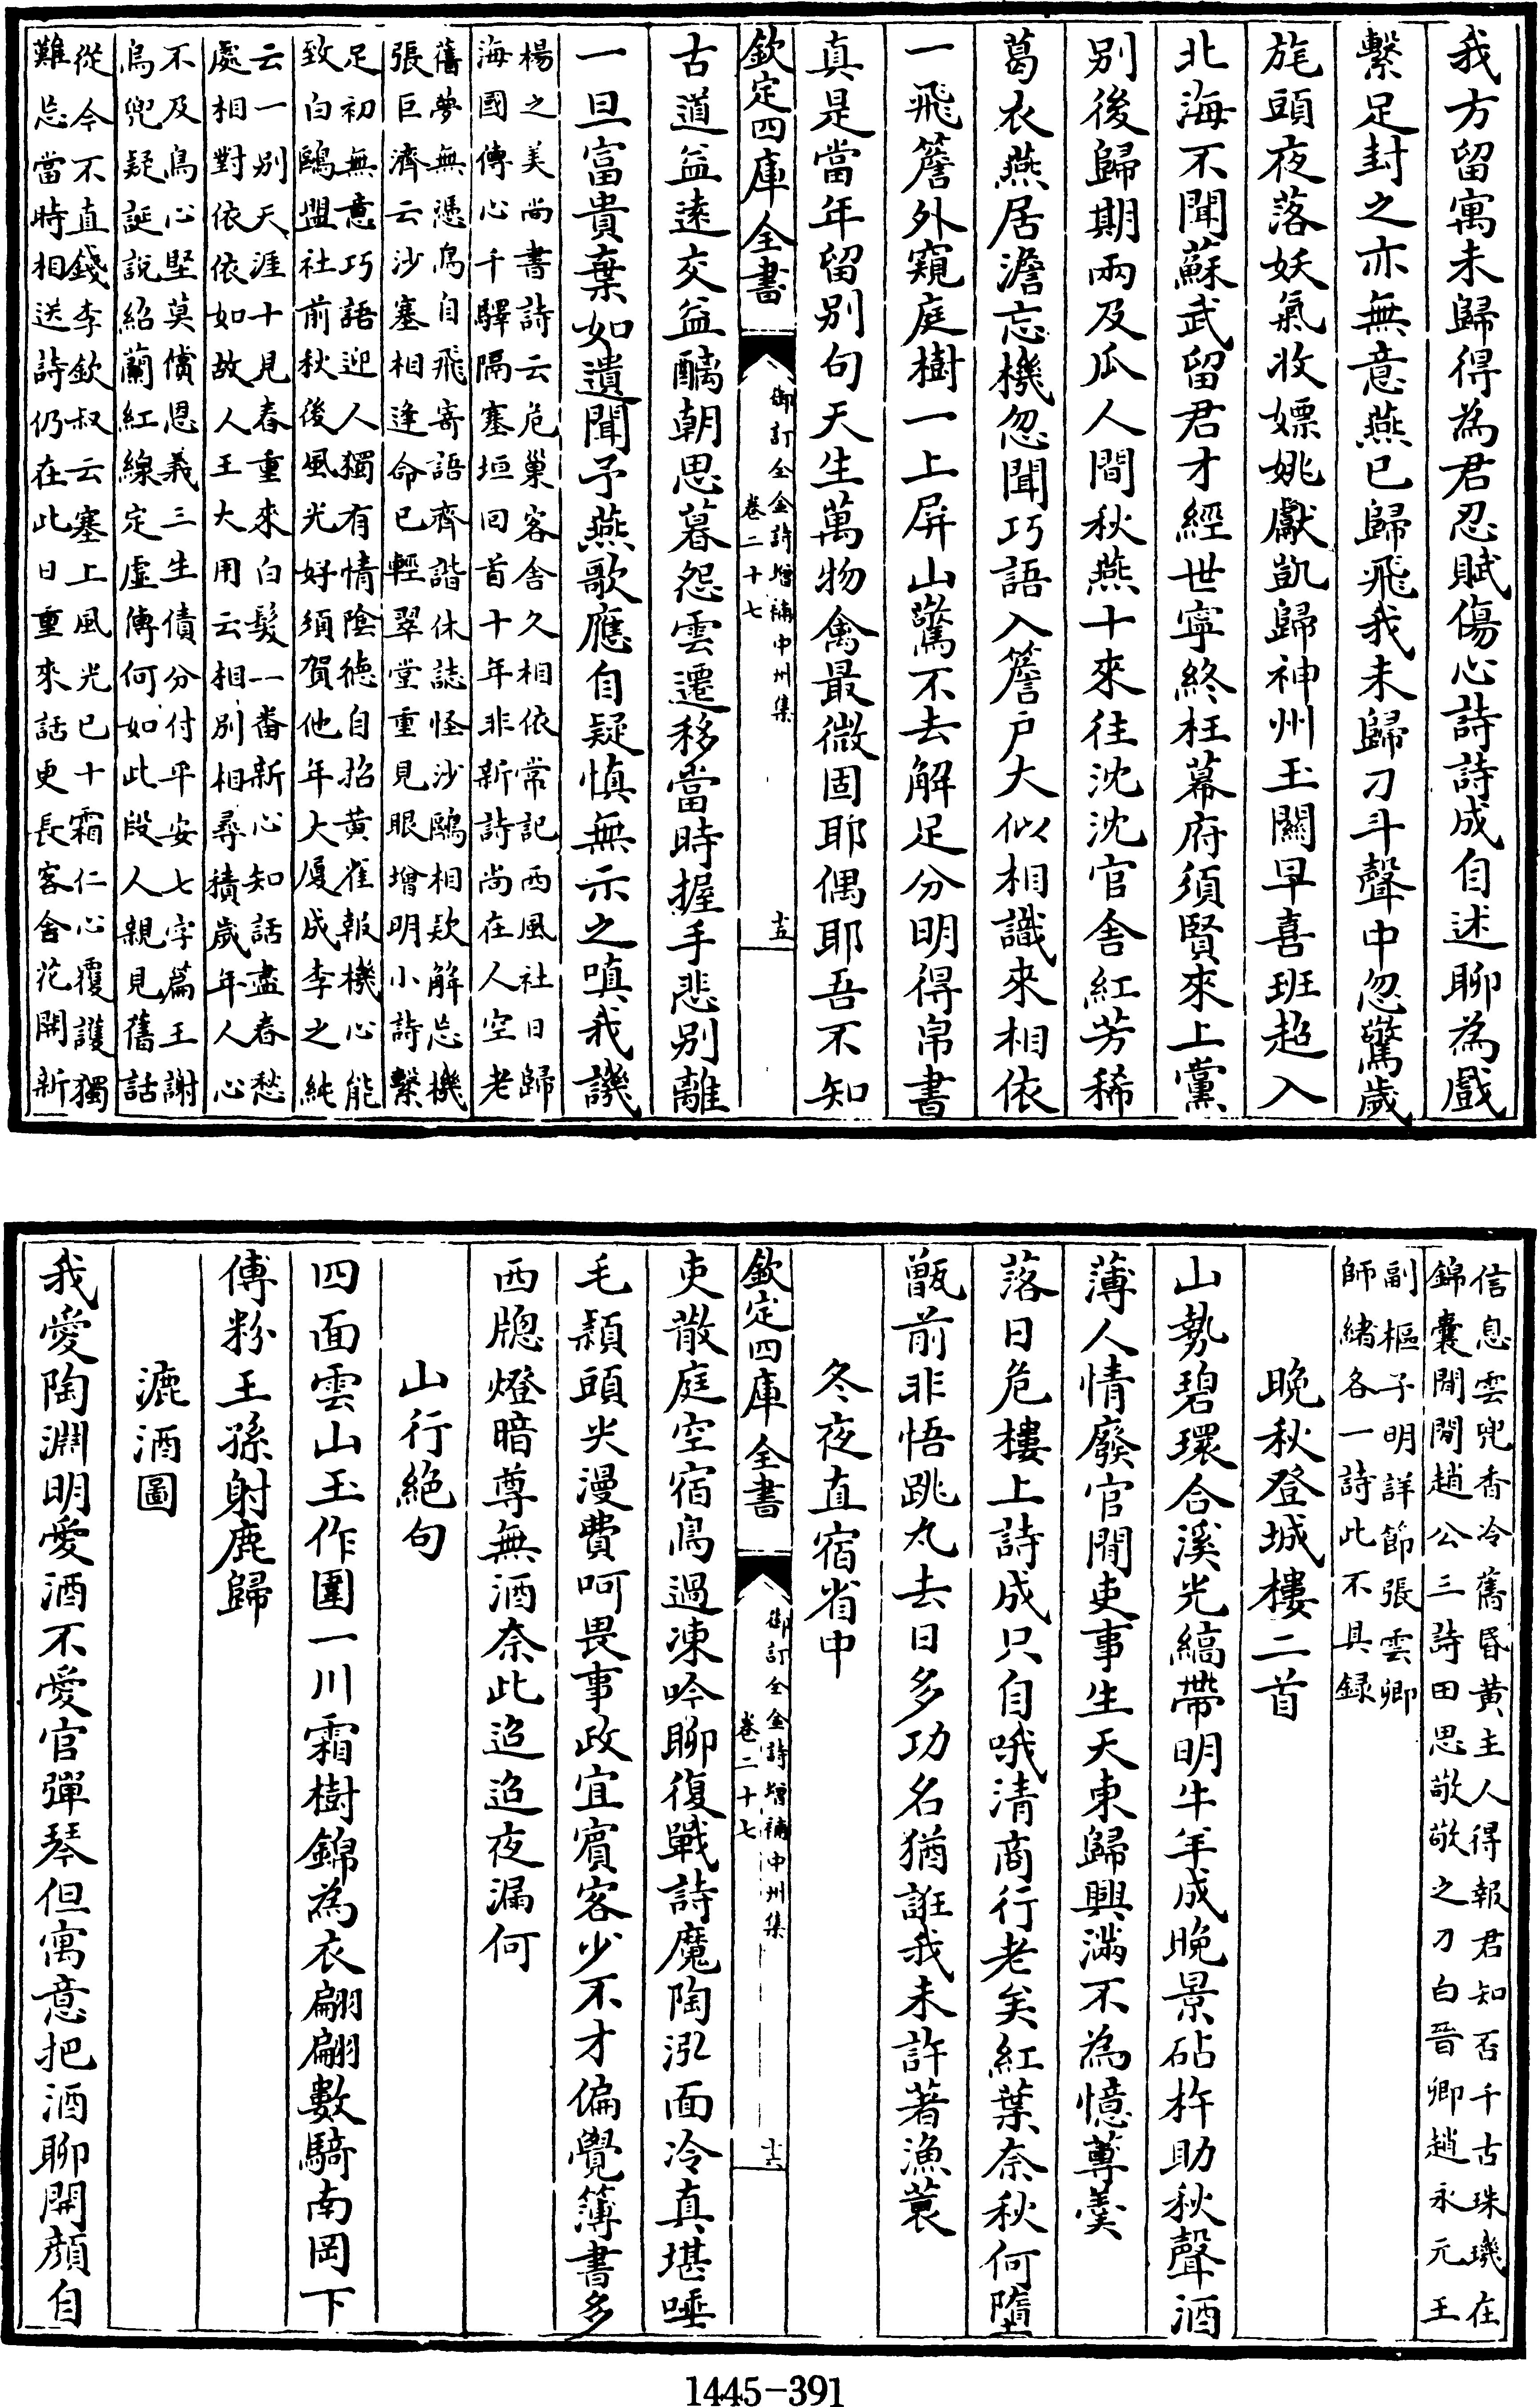 我方留寓未歸得為君忍賦傷心詩詩成自述聊為戲
繫足封之亦無意燕已歸飛我未歸刀斗聲中忽驚歲
旄頭夜落妖氣收嫖姚獻凱歸神州玉關早喜班超入
北海不聞蘇武留君才經世寧終枉幕府須賢來上黨
别後歸期兩及瓜人間秋燕十來往沈沈官舍紅芳稀
葛衣燕居澹忘機忽聞巧語入簷户大似相識來相依
一飛簷外窺庭樹一上屏山驚不去解足分明得帛書
真是當年留别句天生萬物禽最微固耶偶耶吾不知
欽定四庫全書
御訂全金詩增補中州集
卷二十七
十五
古道益遠交益醨朝思暮怨雲遷移當時握手悲别離
一旦富貴棄如遺聞予燕歌應自疑慎無示之嗔我譏
楊之美尚書詩云危巢客舍久相依常記西風社日歸
海國傳心千驛隔塞垣回首十年非新詩尚在人空老
舊夢無憑鳥自飛寄語齊諧休誌怪沙鷗相款解忘機
張巨濟云沙塞相逢命已輕翠堂重見眼增明小詩繫
足初無意巧語迎人獨有情陰德自招黄雀報機心能
致白鷗盟社前秋後風光好須賀他年大厦成李之純
云一别天涯十見春重來白髮一番新心知話盡春愁
處相對依依如故人王大用云相别相尋積歲年人心
不及鳥心堅莫償恩義三生債分付平安七字篇王謝
烏兜疑誕說紹蘭紅線定虛傳何如此段人親見舊話
從今不直錢李欽叔云塞上風光已十霜仁心覆護獨
難忘當時相送詩仍在此日重來話更長客舍花開新
信息雲兜香冷舊昏黄主人得報君知否千古珠璣在
錦囊閒閒趙公三詩田思敬敬之刀白晉卿趙永元王
副樞子明詳節張雲卿
師緒各一詩此不具録
晚秋登城樓二首
山勢碧環合溪光縞帶明牛羊成晚景砧杵助秋聲酒
薄人情廢官閒吏事生天東歸興滿不為憶蓴羹
落日危樓上詩成只自哦清商行老矣紅葉奈秋何墮
甑前非悟跳丸去日多功名猶誑我未許著漁蓑
冬夜直宿省中
欽定四庫全書
御訂全金詩增補中州集
卷二十七
十六
吏散庭空宿鳥過凍吟聊復戰詩魔陶泓面冷真堪唾
毛穎頭尖漫費呵畏事政宜賓客少不才偏覺簿書多
西牕燈暗尊無酒奈此迢迢夜漏何
山行絶句
四面雲山玉作圍一川霜樹錦為衣翩翩數騎南岡下
傅粉王孫射鹿歸
漉酒圖
我愛陶淵明愛酒不愛官彈琴但寓意把酒聊開顔自
1445-391